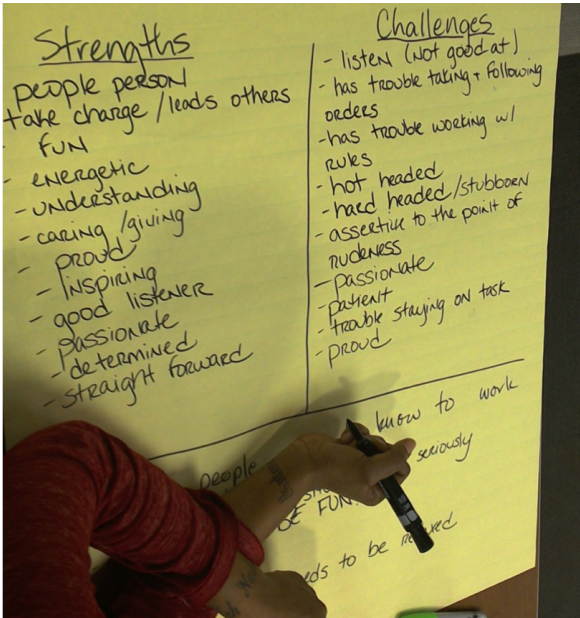 Strengths
people person
take charge/leads others
- FUN
- energetic
- understanding
- caring/giving
- proud
- inspiring
- good listener
- passionate
- determined
- straight forward
Challenges
- listen (not good at)
- has trouble taking + following
orders
- has trouble working w/
rules
- hot headed
- hard headed/stubborn
- assertive to the point of
rudeness
- passionate
- patient
- trouble staying on task
- proud
know to work
people
seriously
BE FUN
to be